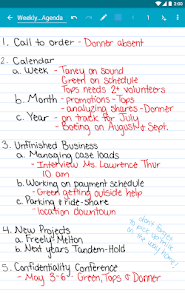 3:00
Weekly_Agenda
1. Call to order - Donner absent
2. Calendar
a. Week - Taney on sound
Green on schedule
Tops needs 2+ volunteers
b. Month - promotions - Tops
- analyzing shares - Donner
c. Year - on track for July
- Boeing on August & Sept.
3. Unfinished Business
a. Managing case loads
- Interview Ms. Lawrence Thur
10 am
b. Working on payment schedule
- Green getting outside help
c. Parking & ride-share
- location downtown
4. New Projects
a. Freely-Melton
b. Next years Tandem-Hold
Don't forget
to pick
on the way home!
5. Confidentiality Conference
- May 3-6 - Green, Tops & Donner